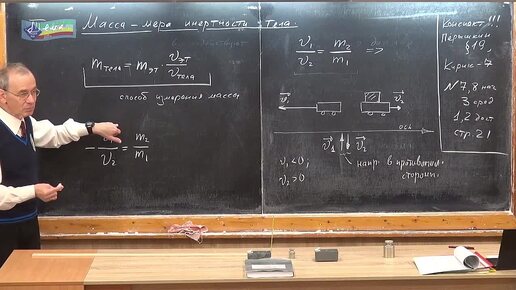 Тема
Масса – мера инертности тела.
m тела = m эт · υ эт / υ тела
способ измерения массы
− υ₁ / υ₂ = m₂ / m₁
υ₁ / υ₂ = m₂ / m₁ =>
υ⃗₁
υ⃗₂
ось
υ⃗₁ υ⃗₂
напр. в противопол.
стороны.
υ₁ < 0,
υ₂ > 0
Конспект!!!
Перышкин
§ 19,
Кирик-7
N 7, 8 нач
3 сред
1, 2 дост
стр. 21